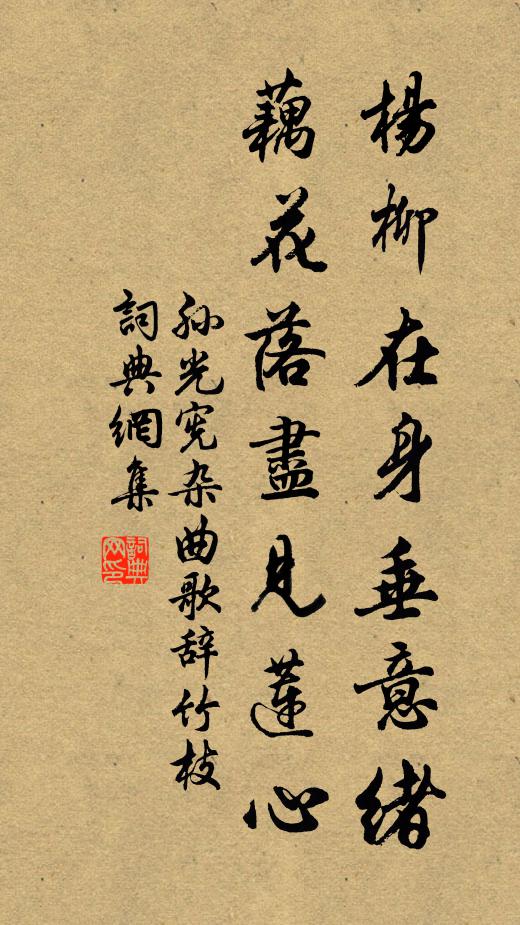 楊柳在身垂意緒
藕花落盡見蓮心
孙光宪杂曲歌辞竹枝
詞典網集
詞典
网印